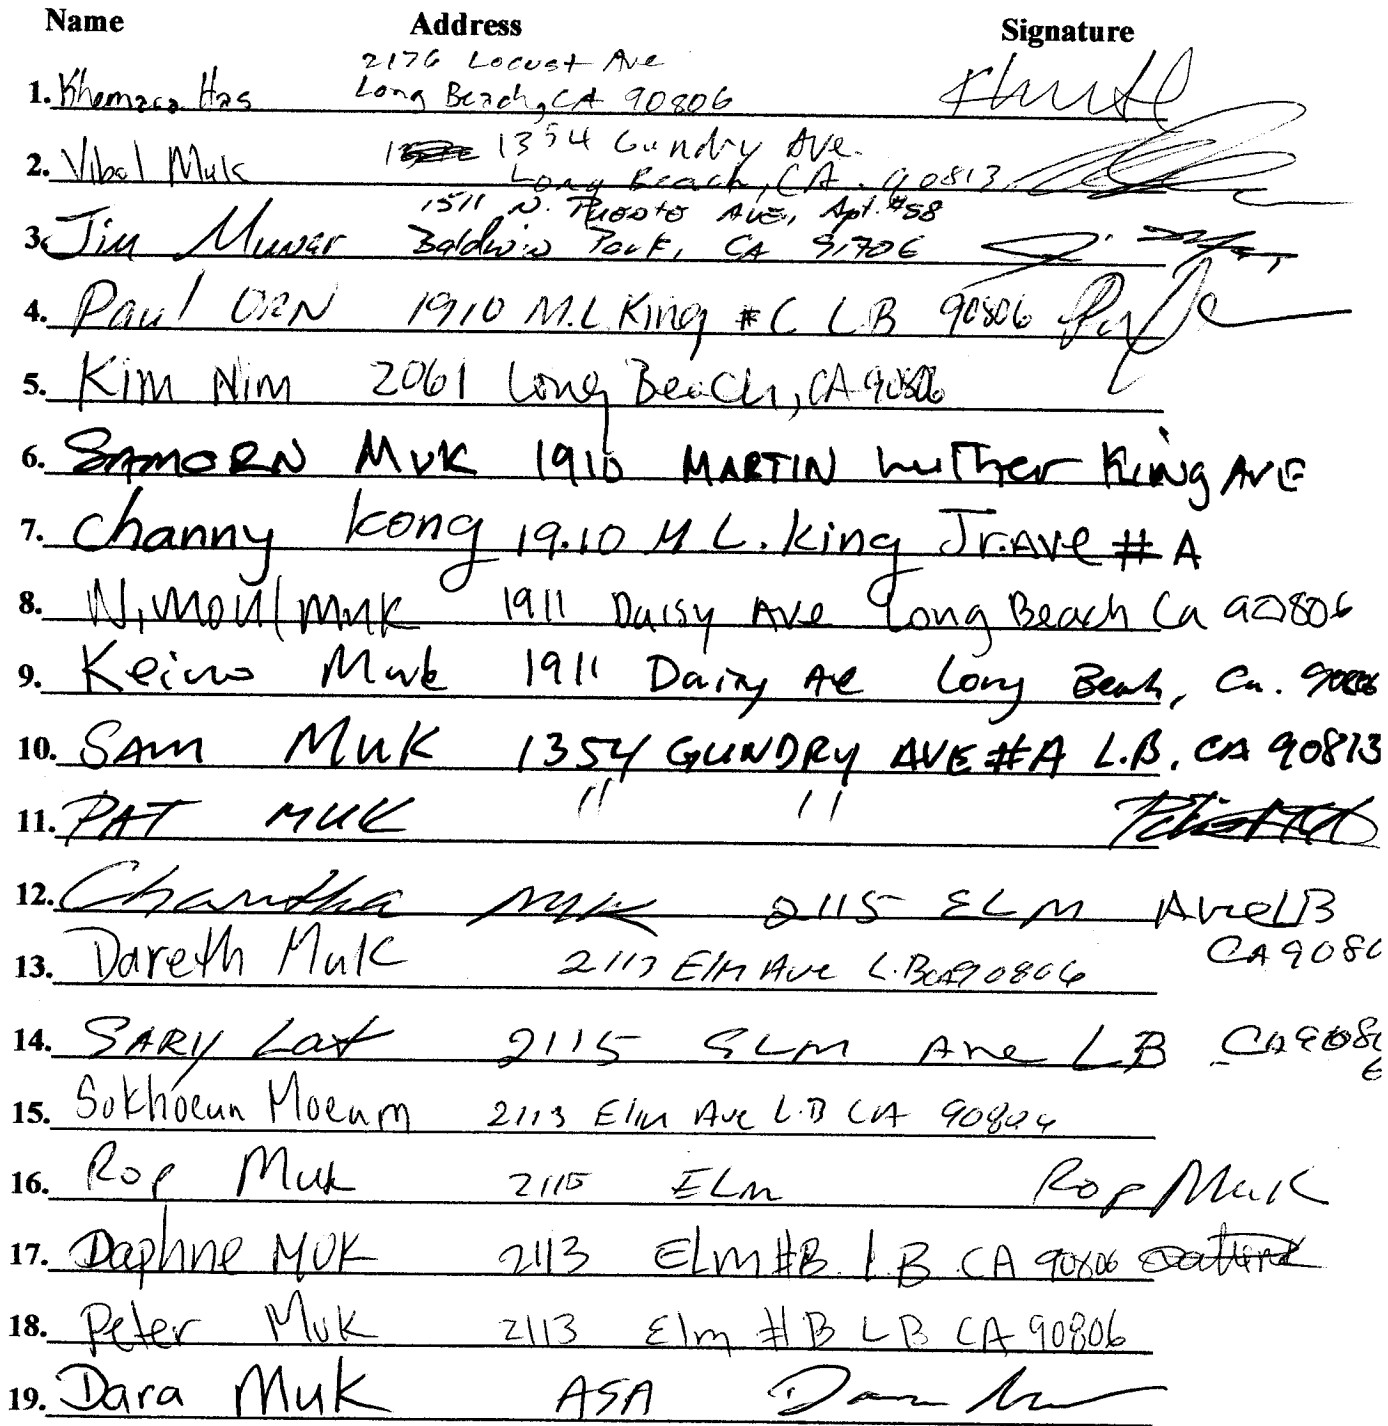 Name Address Signature
2176 Locust Ave
1. Khemara Has Long Beach, CA 90806
2. Vibol Muk 1354 Gundry Ave.
Long Beach, CA. 90813
1511 N. Puente Ave, Apt. #58
3. Jim Munar Baldwin Park, CA 91706
4. Paul ORN 1910 M.L King #C LB 90806
5. Kim Nim 2061 Long Beach, CA 90806
6. SAMORN MUK 1910 MARTIN Luther King AVE
7. Channy kong 19.10 M L. king Jr. Ave # A
8. Nimoul muk 1911 Daisy Ave Long Beach Ca 90806
9. Muk 1911 Daisy Ave Long Beach, Ca. 90806
10. SAM MUK 1354 GUNDRY AVE #A L.B. CA 90813
11. PAT MUK " "
12. Chantha MUK 2115 ELM Ave LB
CA 9080
13. Dareth Muk 2113 Elm Ave L.B CA 90806
14. SARY Lat 2115 ELM Ave LB CA 9080
6
15. Sokhoeun Moeum 2113 Elm Ave L.B CA 90806
16. Rop Muk 2115 ELM Rop Muk
17. Daphne MUK 2113 Elm #B L.B CA 90806
18. Peter Muk 2113 Elm #B LB CA 90806
19. Dara Muk ASA